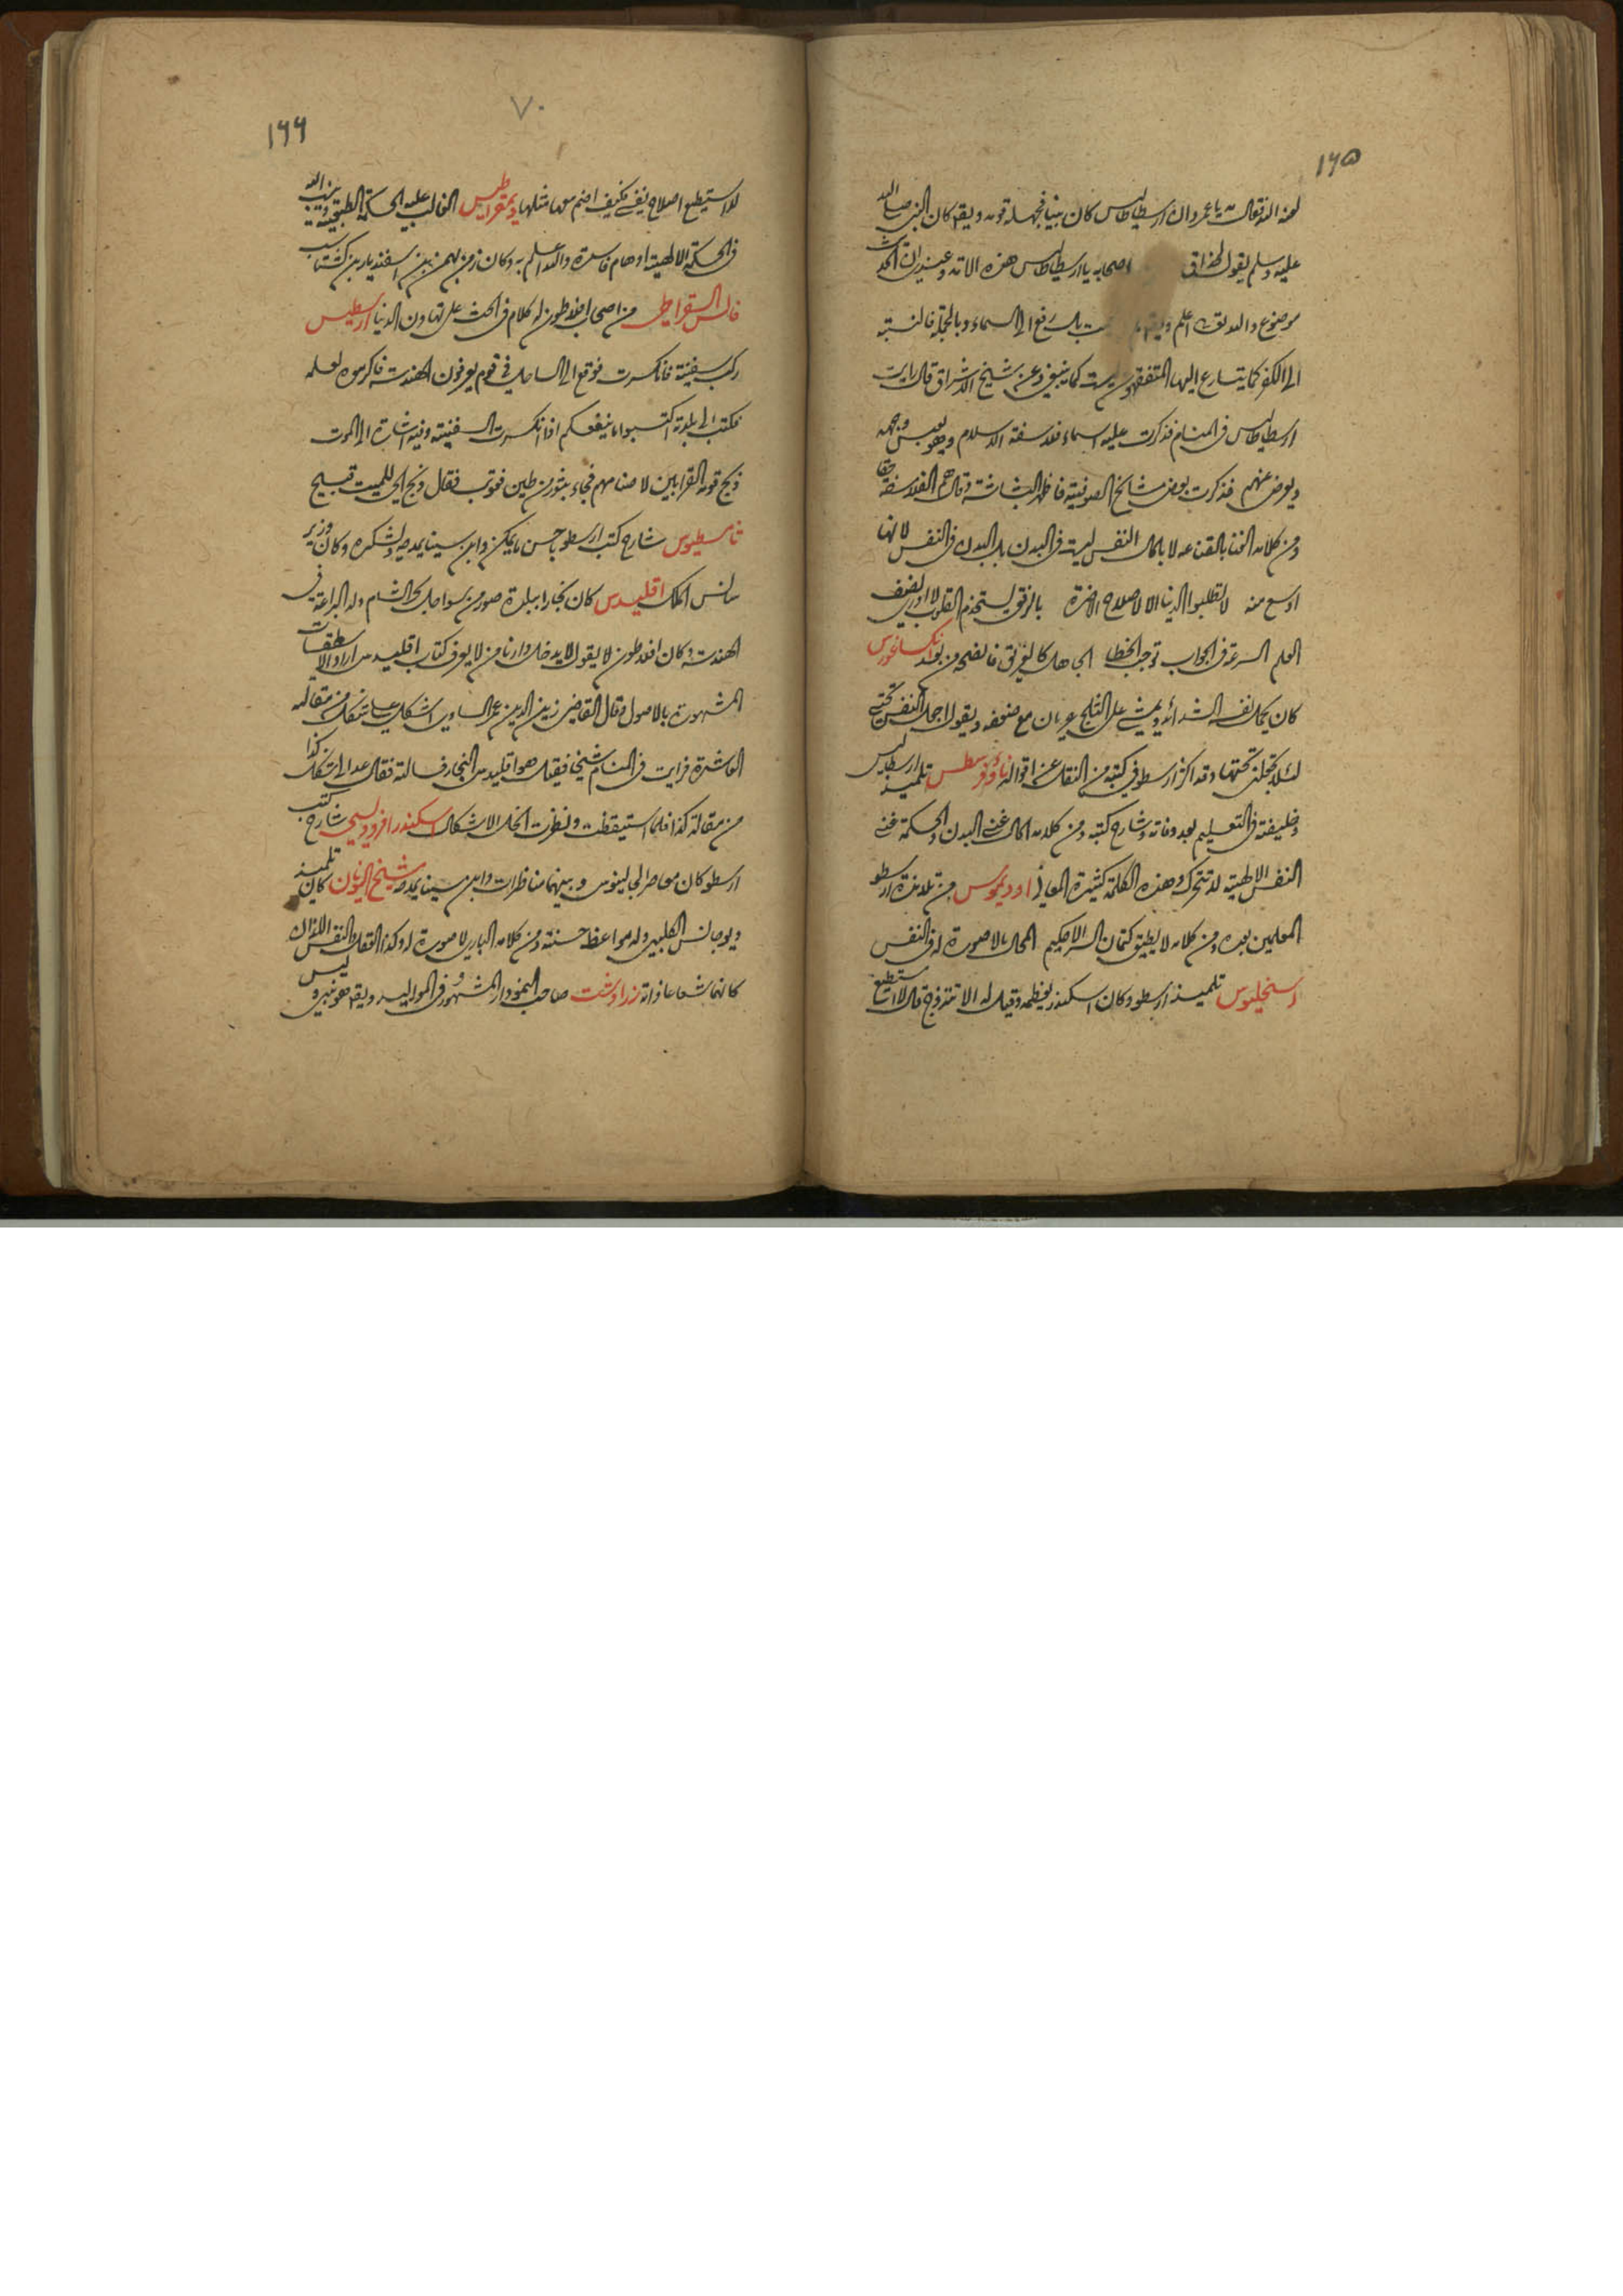 ١٦٥
لعنه الله تعالى يا عمرو ان ارسطاطاليس كان نبيا فجهله قومه ويقم كان النبي صلى الله
عليه وسلم يقول لحذاق اصحابه يا ارسطاطاليس هذه الامة وعندي ان الحديث
موضوع والله تعالى اعلم بل رفع الى السماء وبالجملة فالنسبته
الى الكفر كما يتسارع اليها المتفقهون ليست كما ينبغي وعن شيخ الاشراق قال رايت
ارسطاطاليس في المنام فذكرت عليه اسماء فلاسفة الاسلام وهو يعبس وجهه
ويعرض عنهم فذكرت بعض مشايخ الصوفية فاظهر البشاشة وقال هم الفلاسفة حقا
ومن كلامه الغنا بالقناعة لا بالمال النفس ليست في البدن بل البدن في النفس لانها
اوسع منه لا تطلبوا الدنيا الا لاصلاح الاخرة بالرفق يستخدم القلوب لا ادري نصف
العلم السرعة في الجواب توجب الخطا الجاهل كالغريق فانصحه من بعد انكساغورس
كان يحمل نفسه الشدائد ويمشي على الثلج عريان مع ضعفه ويقول اجعل النفس تحتي
لئلا تجعلني تحتها وقد اكثر ارسطو في كتبه من النقل عن اقواله ثاوفرسطس تلميذ ارسطاليس
وخليفته في التعليم بعد وفاته وشارح كتبه ومن كلامه المال غنى البدن والحكمة غنى
النفس الالهية لا تتحرك وهذه الكلمة كثيرة المعاني اوديموس من تلامذة ارسطو
المعلمين بعده ومن كلامه لا يطيق كتمان السر الا حكيم المحال لا صورة له في النفس
اسنحليوس تلميذ ارسطو وكان اسكندر يعظمه وقيل له الا تتزوج قال لا استطيع
٧٠
١٦٦
لا استطيع اصلاح نفسي فكيف اضم معها مثلها ديمقراطيس الغالب عليه الحكمة الطبيعية ينسب اليه
في الحكمة الالهية اوهام فاسدة والله اعلم به وكان زمن بهمن بن اسفنديار بن كشتاسب
فالس السقراطي من اصحاب افلاطون له كلام في الحث على تهاون الدنيا ارسطيس
ركب سفينة فانكسرت فوقع الى الساحل في قوم يعرفون الهندسة فاكرموه لعلمه
فكتب الى بلدته اكتسبوا ما ينفعكم اذا انكسرت السفينة وفيه اشارة الى الموت
ذبح قومه القرابين لاصنامهم فجاء بثور من طين فعوتب فقال ذبح الحي للميت قبيح
ثامسطيوس شارح كتب ارسطو باحسن ما يمكن وابن سينا يمدحه ويشكره وكان وزير
الملك اقليدس كان نجارا ببلدة صور من سواحل بحر الشام وله البراعة في
الهندسة وكان افلاطون لا يقول لا يدخل دارنا من لا يعرف كتاب اقليدس اراد الاسطقسات
المشهورة بالاصول وقال القاضي زين الدين عمر الساوي اشكل علي شكل من مقاله
العاشرة فرايت في المنام شيخا فقيل هو اقليدس النجار فسالته فقال عد الى شكل كذا
من مقالة كذا فلما استيقظت ونظرت انحل الاشكال اسكندر افروديسي شارح كتب
ارسطو كان معاصرا لجالينوس وبينهما مناظرات وابن سينا يمدحه شيخ اليونان كان تلميذ
ديوجانس الكلبي وله مواعظ حسنة ومن كلامه الباري لا صورة له وكذا العقل والنفس اللذان
كانهما شعاعا ذاته زرادشت صاحب النمودار المشهور في المواليد ويقم هو نبي وليس